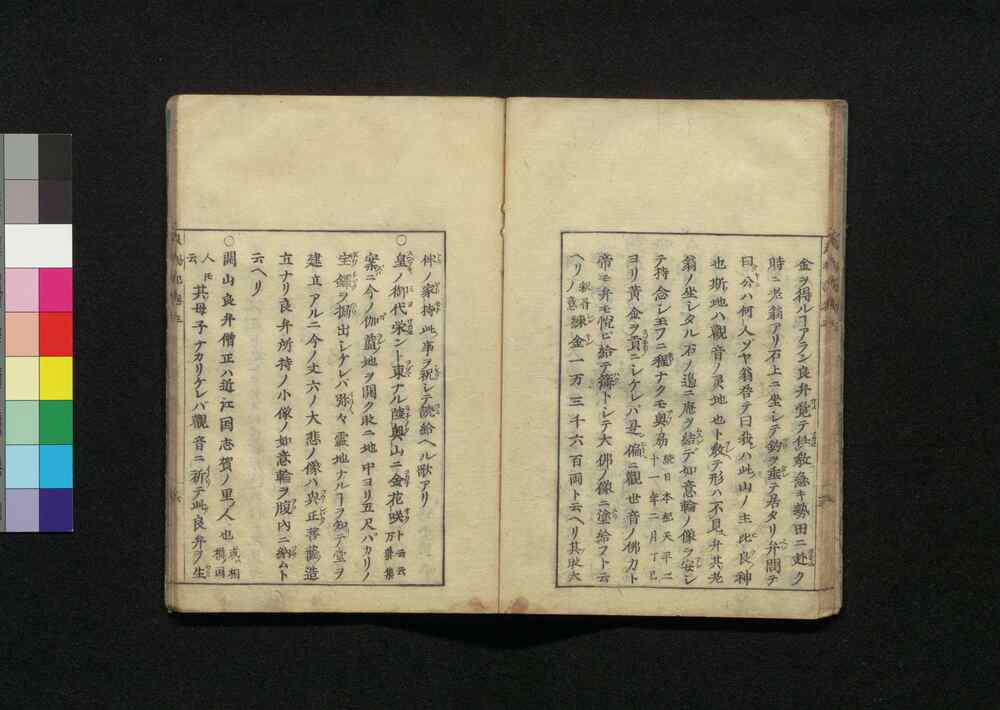 金ヲ得ルヿアラン良弁覚テ仕敷急キ勢田ニ赴ク
時ニ老翁アリ石上ニ坐シテ釣ヲ垂テ居タリ弁問テ
曰公ハ何人ゾヤ翁答テ曰我ハ此山ノ主比良神
也斯地ハ觀音ノ灵地也ト敎テ形ハ不見弁其老
翁ノ坐シタル石ノ邉ニ庵ヲ結デ如意輪ノ像ヲ安シ
テ持念シ玉フニ程ナクモ奥易 続日本紀天平二十一年二月丁巳
ヨリ黄金ヲ貢ニシケレバ是偏ニ觀世音ノ佛力ト
帝モ弁モ悅ビ給テ トシテ大佛ノ像ニ塗給フト云
ヘリ 釈書ノ意 練金一万三千六百両ト云ヘリ其砌大
伴ノ家持此事ヲ祝シテ読給ヘル歌アリ
○皇ノ御代栄ント東ナル陸奥山ニ金花咲 ト云云万葉集
案ニ今ノ伽藍地ヲ開ク砌ニ地中ヨリ五尺バカリノ
宝鐸ヲ掘出シケレバ弥々霊地ナルヿヲ知テ堂ヲ
建立アルニ今ノ丈六ノ大悲ノ像ハ 正菩薩造
立ナリ良弁所持ノ小像ノ如意輪ヲ腹内ニ納ムト
云ヘリ
○開山良弁僧正ハ近江国志賀ノ里ノ人也 或相模国
人モ云 其母子ナカリケレバ觀音ニ祈テ此良弁ヲ生